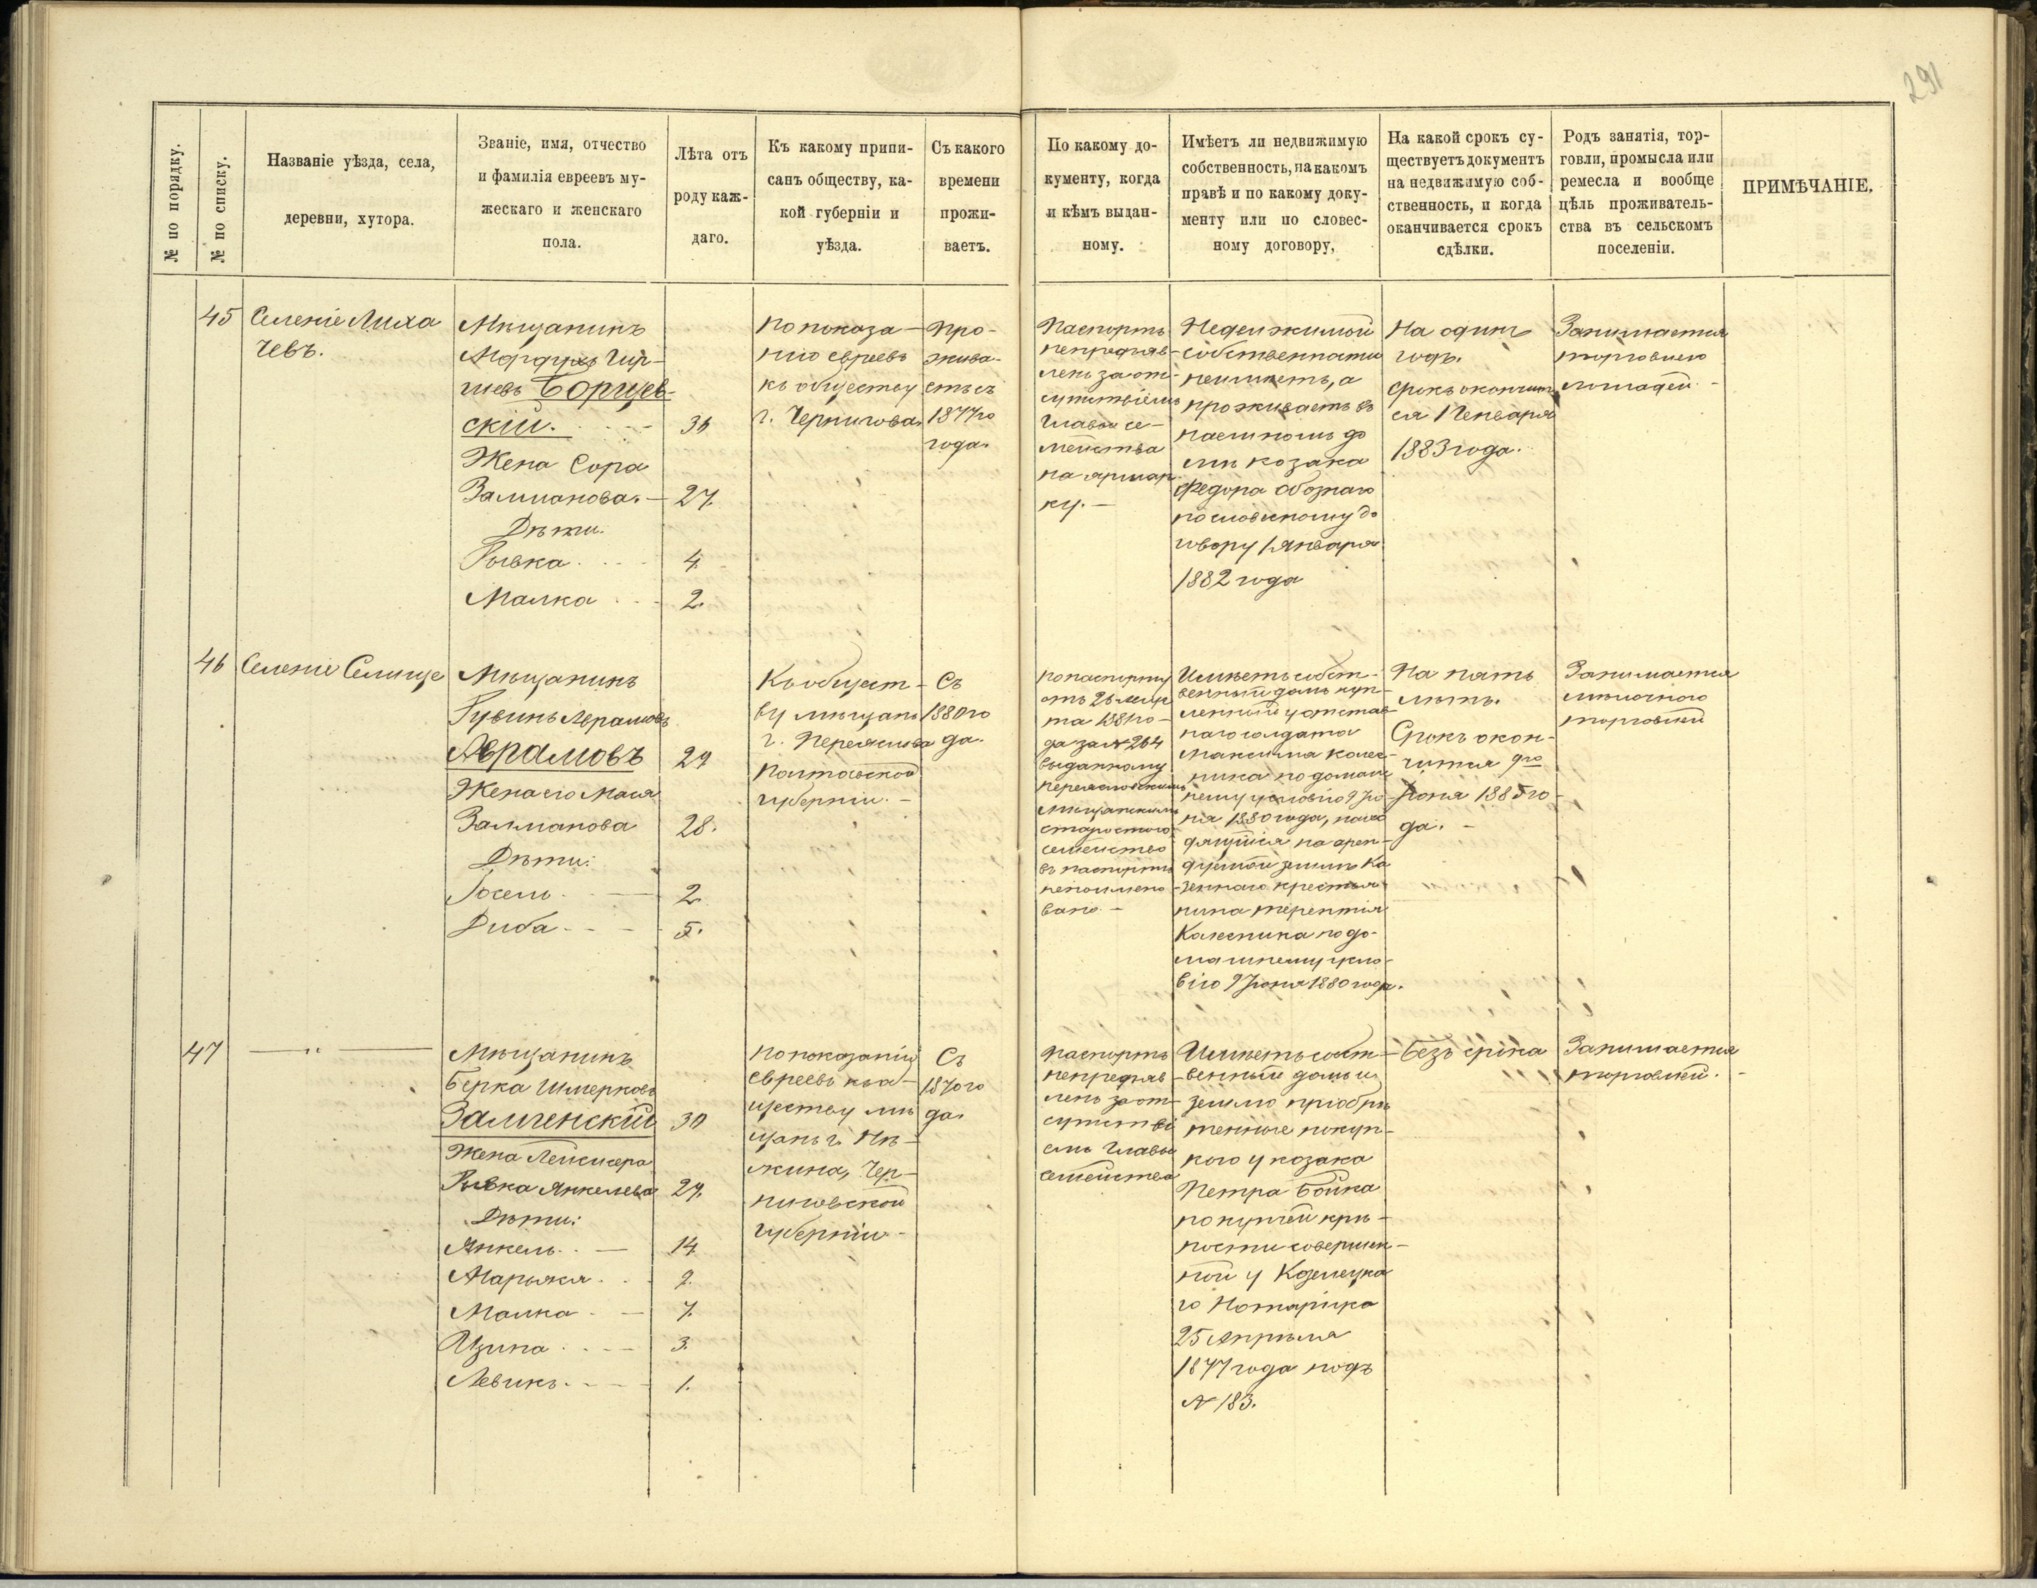 291
№ по порядку.
№ по списку.
Названіе уѣзда, села,
деревни, хутора.
Званіе, имя, отчество
и фамилія евреевъ му-
жескаго и женскаго
пола.
Лѣта отъ
роду каж-
даго.
Къ какому припи-
санъ обществу, ка-
кой губерніи и
уѣзда.
Съ какого
времени
прожи-
ваетъ.
По какому до-
кументу, когда
и кѣмъ выдан-
ному.
Имѣетъ ли недвижимую
собственность, на какомъ
правѣ и по какому доку-
менту или по словес-
ному договору,
На какой срокъ су-
ществуетъ документъ
на недвижимую соб-
ственность, и когда
оканчивается срокъ
сдѣлки.
Родъ занятія, тор-
говли, промысла или
ремесла и вообще
цѣль проживатель-
ства въ сельскомъ
поселеніи.
ПРИМѢЧАНІЕ.
45
Селеніе Лиха
чевъ.
Мѣщанинъ
Мордухъ Гир-
шевъ Борщев-
скій.
36
Жена Сора
Залманова. 27.
Дѣти.
Рывка 4.
Малка 2.
По показа-
нію евреевъ
къ обществу
г. Чернигова.
Про-
жива-
етъ съ
1877 го
года.
Паспортъ
непредъяв-
ленъ за от-
сутствіемъ
главы се-
мейства
на ярмар-
ку.
Недвижимой
собственности
неимѣетъ, а
проживаетъ въ
наемномъ до
мѣ козака
Федора Обознаго
по словесному до
говору 1 Января
1882 года
На одинъ
годъ.
Срокъ окончит
ся 1 Генваря
1883 года.
Занимается
торговлею
лошадей
46
Селеніе Селище
Мѣщанинъ
Рувинъ Аврамовъ
Аврамовъ 29
Жена его Мася
Залманова 28.
Дѣти:
Іосель 2.
Диба 5.
Къ общест-
ву мѣщанъ
г. Переяслава
Полтавской
губерніи.
Съ
1880 го
да.
По паспорту
отъ 26 Мар
та 1881 го-
да за № 264
выданному
Переяславскимъ
мѣщанскимъ
старостою
семейство
въ паспортѣ
непоимено
вано.
Имѣетъ собст-
венный домъ куп-
ленный у отстав-
наго солдата
Максима Колес-
ника по домаш
нему условію 9 Ію
ня 1880 года, нахо
дящійся на арен-
дуемой землѣ Ка
зеннаго крестья
нина Терентія
Колесника по до-
машнему усло-
вію 9 Іюня 1880 года.
На пять
лѣтъ.
Срокъ окон-
чится 9 го
Іюня 1885 го
да.
Занимается
мѣлочною
торговлей
47
— " —
Мѣщанинъ
Берка Шмерковъ
Замгенскій 30
Жена
Рывка Янкелева 29.
Дѣти:
Янкель 14.
Марьяся 9.
Малка 7.
Изина 3.
Левикъ 1.
По показанію
евреевъ къ об-
ществу мѣ
щанъ г. Нѣ-
жина, Чер-
ниговской
губерніи
Съ
1870 го
да.
Паспортъ
непредъяв
ленъ за от-
сутстві
емъ главы
семейства
Имѣетъ собст-
венный домъ и
землю пріобрѣ
тенные покуп-
кою у козака
Петра Бойка
по купчей крѣ-
пости совершен-
ной у Козелецка
го Нотаріуса
25 Апрѣля
1877 года подъ
№ 183.
Безъ срока
Занимается
торговлей.